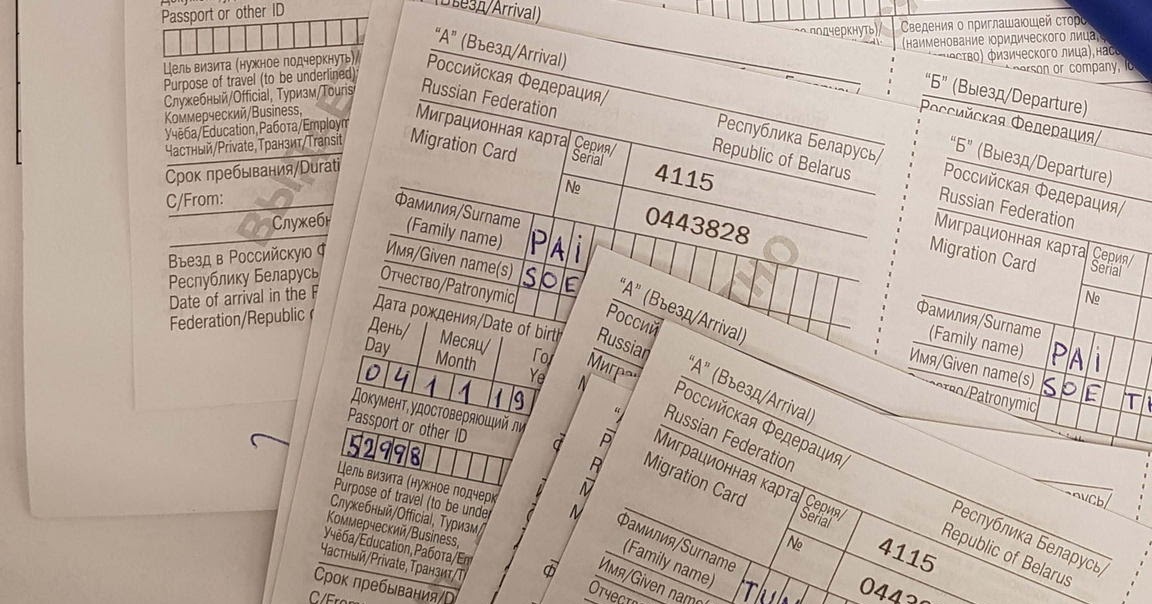 Passport or other ID
Цель визита (нужное подчеркнуть)/
Purpose of travel (to be underlined):
Служебный/Official, Туризм/Touris
Коммерческий/Business,
Учёба/Education, Работа/Employm
Частный/Private, Транзит/Transit
Срок пребывания/Durati
С/From:
Служеб
Въезд в Российскую Ф
Республику Беларусь
Date of arrival in the F
Federation/Republic
(Въезд/Arrival)
"А" (Въезд/Arrival)
Российская Федерация/
Russian Federation
Республика Беларусь/
Republic of Belarus
Миграционная карта
Migration Card
Серия/
Serial
4115
№
0443828
Фамилия/Surname
(Family name)
PAI
Имя/Given name(s)
SOE
Отчество/Patronymic
Дата рождения/Date of birth
День/
Day
Месяц/
Month
Го
Ye
0 4 1 1 1 9
Документ, удостоверяющий ли
Passport or other ID
52998
Цель визита (нужное подчерк
Purpose of travel (to be under
Служебный/Official, Туризм/
Коммерческий/Business,
Учёба/Education, Работа/Em
Частный/Private, Транзит/T
Срок пребывания/D
С/From
подчеркнуть)/
Сведения о приглашающей сторо
(наименование юридического лица,
физического лица), нас
person or company,
"Б" (Выезд/Departure)
Российская Федерация/
"Б" (Выезд/Departure)
Российская Федерация/
Russian Federation
Миграционная карта
Migration Card
Серия/
Serial
№
Фамилия/Surname
(Family name)
PAI
Имя/Given name(s)
SOE
Patronymic
"А" (Въезд/Arrival)
Россий
Russian
"А" (Въезд/Arrival)
Российская Федерация/
Russian Federation
Республика Беларусь/
Republic of Belarus
Миграционная карта
Migration Card
Серия/
Serial
4115
№
0443
Фамилия/Surname
(Family name)
Имя/Given name(s)
Отчество